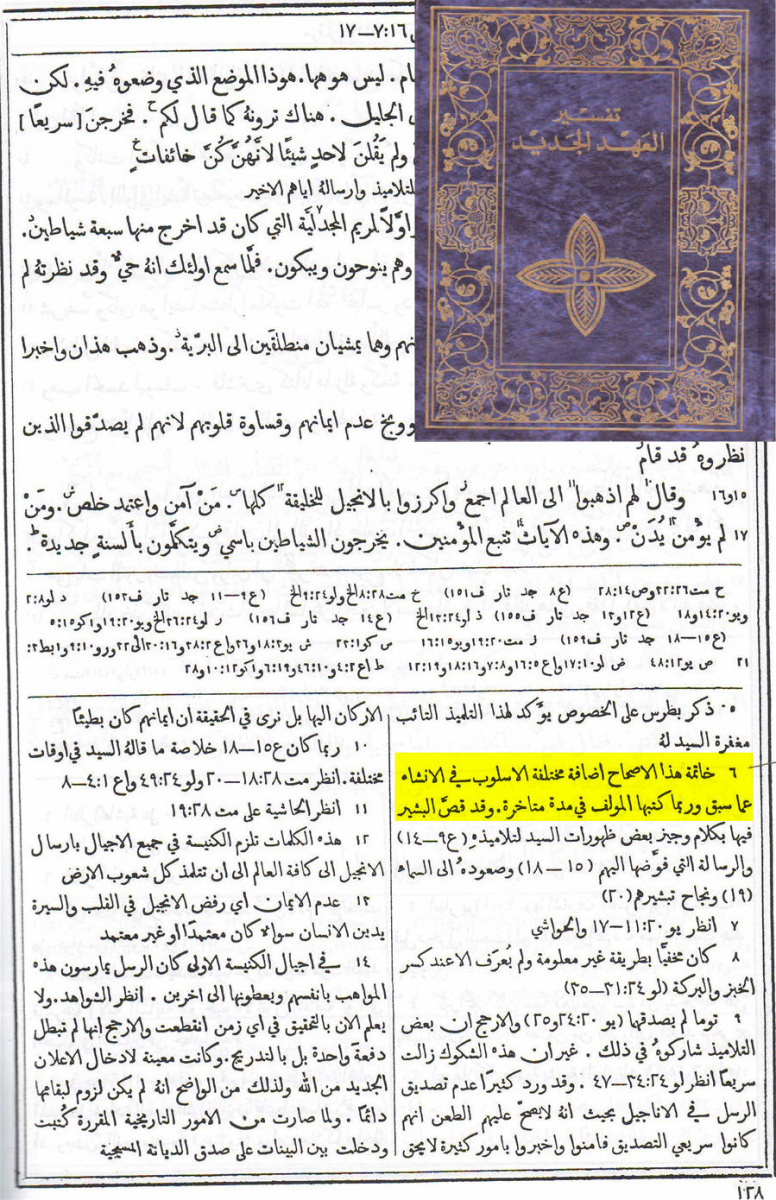 ١٧—٧:١٦
تفسير
العهد الجديد
ام. ليس هو ههنا. هوذا الموضع الذي وضعوهُ فيهِ. لكن
الجليل. هناك ترونهُ كما قال لكم. فخرجن [سريعًا]
ولم يقُلنَ لاحدٍ شيئًا لأنَّهنَّ كُنَّ خائفاتٍ
للتلاميذ وارسالهُ اياهم الاخير
اولًا لمريم المجدلية التي كان قد اخرج منها سبعة شياطين.
وهم ينوحون ويبكون. فلمَّا سمع اولئك انهُ حيٌّ وقد نظرتهُ لم
نهم وهما يمشيان منطلقَين الى البرّية. وذهب هذان واخبرا
ووبخ عدم ايمانهم وقساوة قلوبهم لانهم لم يصدّقوا الذين
نظروهُ قد قام
١٥و١٦ وقال لهم اذهبوا الى العالم اجمع واكرزوا بالانجيل للخليقة كلها. مَنْ آمن واعتمد خلص. ومَنْ
١٧ لم يؤمن يُدَنْ. وهذه الآيات تتبع المؤمنين. يخرجون الشياطين باسمي ويتكلَّمون بألسنةٍ جديدة.
ح مت ٣٢:٢٦وص ٢٨:١٤ (ع٨ جد تار ف١٥١) خ مت ٨:٢٨الخ ولو ٩:٢٤الخ (ع٩—١١ جد تار ف١٥٢) د لو ٢:٨
ويو ١٤:٢٠و١٨ (ع١٢و١٣ جد تار ف١٥٥) ذ لو ١٣:٢٤الخ (ع١٤ جد تار ف١٥٦) ر لو ٣٦:٢٤الخ ويو ١٩:٢٠و١كو ٥:١٥
(ع١٥—١٨ جد تار ف١٥٩) ز مت ١٩:٢٨ويو ١٦:١٥
٥ ذكر بطرس على الخصوص يؤكد لهذا التلميذ التائب
مغفرة السيد لهُ
٦ خاتمة هذا الاصحاح اضافة مختلفة الاسلوب في الانشاء
عما سبق وربما كتبها المولف في مدة متاخرة. وقد قصَّ البشير
فيها بكلام وجيز بعض ظهورات السيد لتلاميذهِ (ع٩—١٤)
والرسالة التي فوَّضها اليهم (١٥—١٨) وصعودهُ الى السماء
(١٩) ونجاح تبشيرهم (٢٠)
٧ انظر يو ١١:٢٠—١٧ والحواشي
٨ كان مخفيًّا بطريقة غير معلومة ولم يعرَف الا عند كسر
الخبز والبركة (لو ٢١:٢٤—٣٥)
٩ توما لم يصدقها (يو ٢٤:٢٠و٢٥) والارجح ان بعض
التلاميذ شاركوهُ في ذلك. غير ان هذه الشكوك زالت
سريعًا انظر لو ٣٤:٢٤—٤٧. وقد ورد كثيرًا عدم تصديق
الرسل في الاناجيل بحيث انهُ لا يصحّ عليهم الطعن انهم
كانوا سريعي التصديق فامنوا واخبروا بامور كثيرة لا يحق
الاركان اليها بل نرى في الحقيقة ان ايمانهم كان بطيئًا
١٠ ربما كان ع١٥—١٨ خلاصة ما قالهُ السيد في اوقات
مختلفة. انظر مت ١٨:٢٨—٢٠ ولو ٤٩:٢٤ واع ٤:١—٨
١١ انظر الحاشية على مت ١٩:٢٨
١٢ هذه الكلمات تلزم الكنيسة في جميع الاجيال بارسال
الانجيل الى كافة العالم الى ان تتلمذ كل شعوب الارض
١٣ عدم الايمان اى رفض الانجيل في القلب والسيرة
يدين الانسان سوالا كان معتمِدًا او غير معتمِد
١٤ في اجيال الكنيسة الاولى كان الرسل يمارسون هذه
المواهب بانفسهم ويعطونها الى اخرين. انظر الشواهد. ولا
يعلم الان بالتحقيق في اى زمن انقطعت والارجح انها لم تبطل
دفعةً واحدة بل بالتدريج. وكانت معينة لادخال الاعلان
الجديد من الله ولذلك من الواضح انهُ لم يكن لزوم لبقائها
دائمًا. ولما صارت من الامور التاريخية المقررة كُتبت
ودخلت بين البينات على صدق الديانة المسيحية
١٢٨